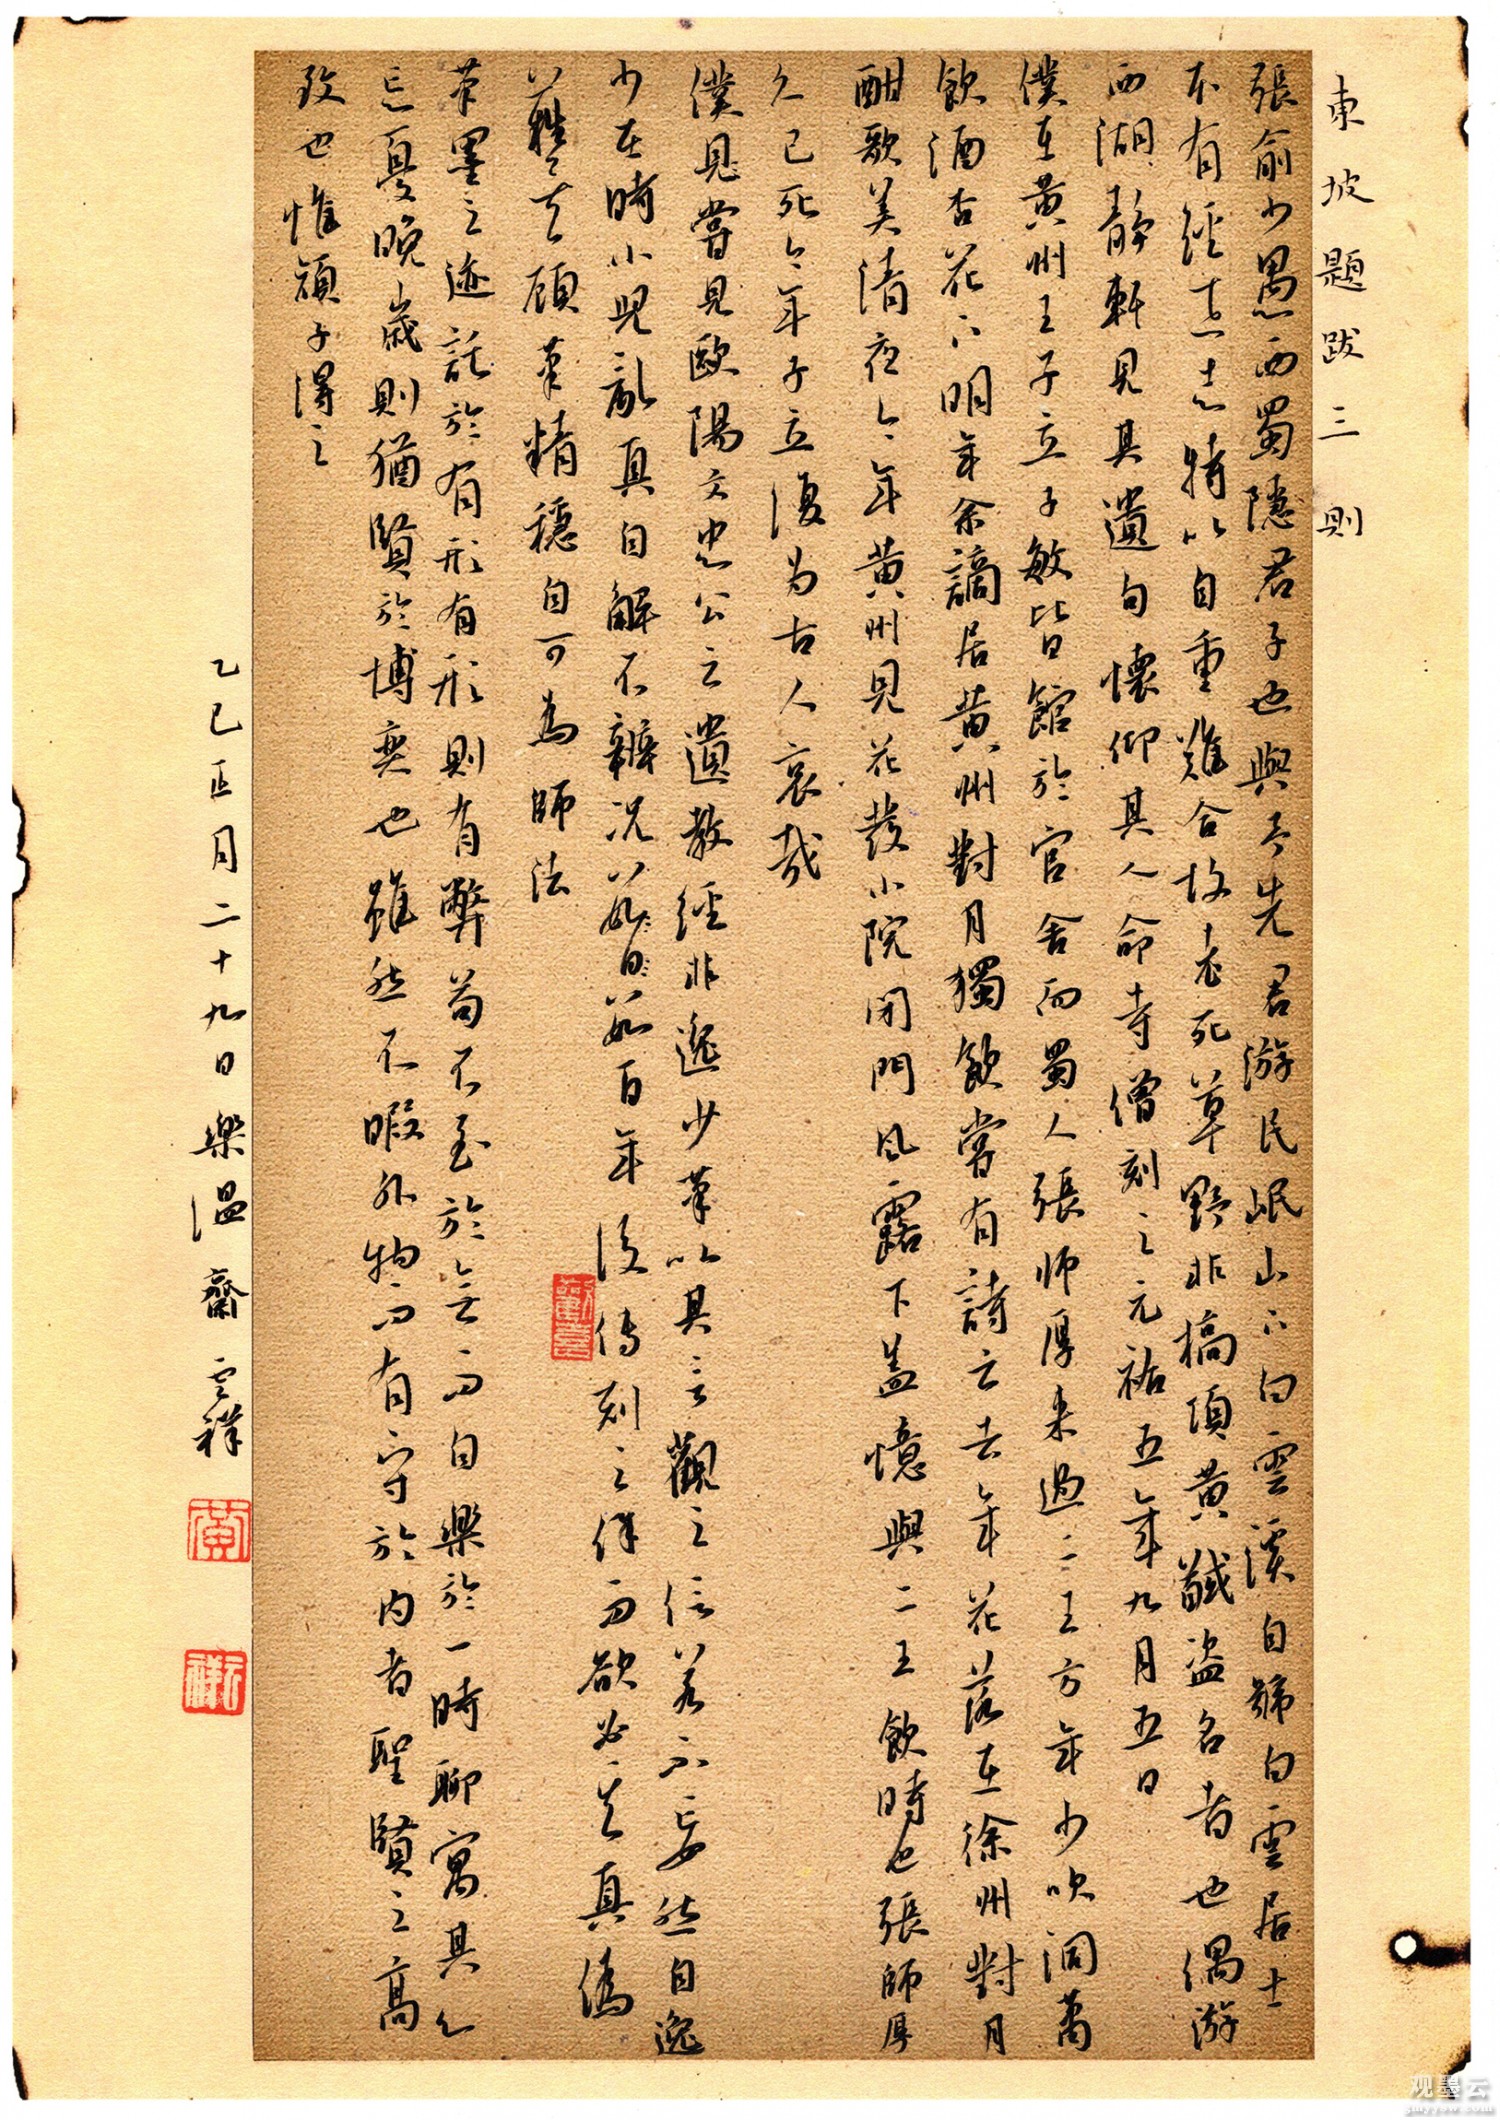 東坡題跋三則
張俞少愚西蜀隱君子也與予先君游民岷山下白雲溪自號白雲居士
本有經世志特以自重難合故老死草野非槁項黃馘盜名者也偶游
西湖靜軒見其遺句懷仰其人命寺僧刻之元祐五年九月五日
僕在黃州王子立子敏皆館於官舍而蜀人張師厚來過二王方年少吹洞簫
飲酒杏花下明年余謫居黃州對月獨飲嘗有詩云去年花落在徐州對月
酣歌美清夜今年黃州見花發小院閉門風露下蓋憶與二王飲時也張師厚
久已死今年子立復為古人哀哉
僕見嘗見歐陽文忠公云遺教經非逸少筆以其言觀之信若不妄然自逸
少在時小兒亂真自解不辨況數百年後傳刻之餘而欲必其真偽
難矣顧筆精穩自可為師法
筆墨之迹託於有形有形則有弊苟不至於無而自樂於一時聊寓其心
忘憂晚歲則猶賢於博奕也雖然不假外物而有守於內者聖賢之高
致也惟顏子得之
乙巳正月二十九日樂溫齋雲祥
雲祥
观墨云